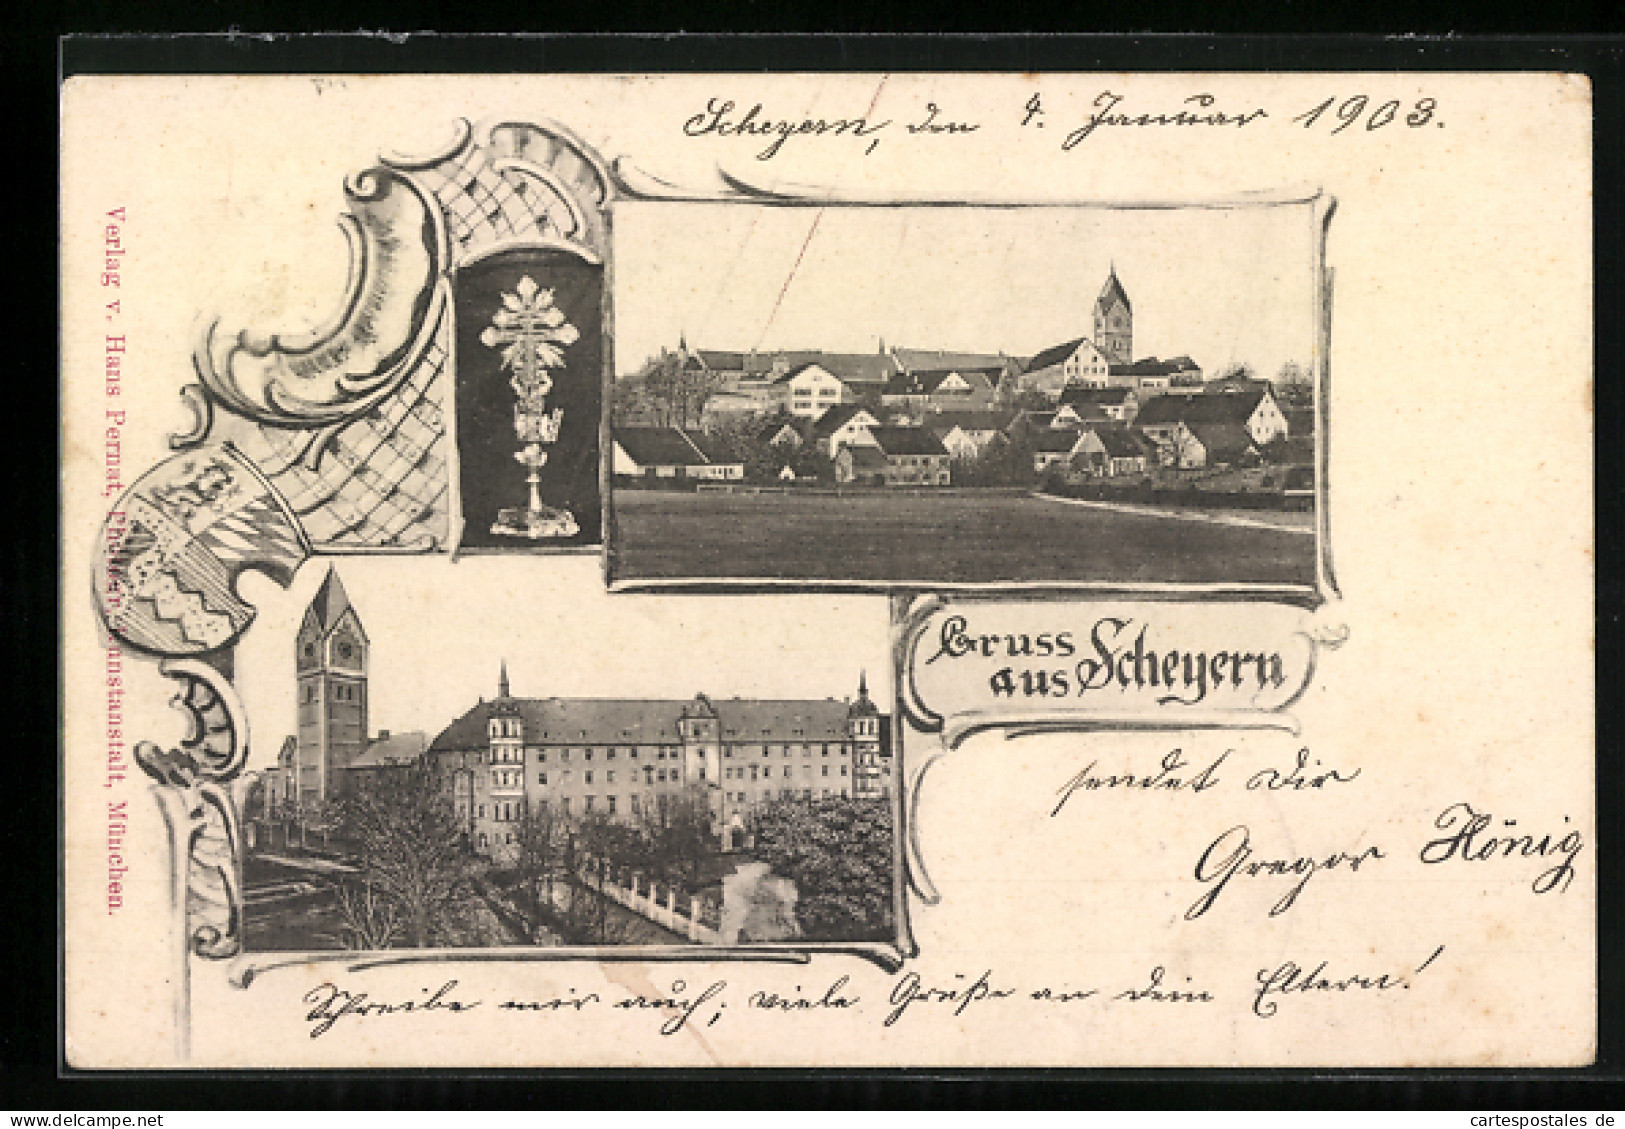 Scheyern, den 4. Januar 1903.
Verlag v. Hans Pernat, Photogr. Kunstanstalt, München.
Gruss
aus Scheyern
sendet Dir
Gregor König
Schreibe mir auch; viele Grüße an dein Eltern!
cartespostales de